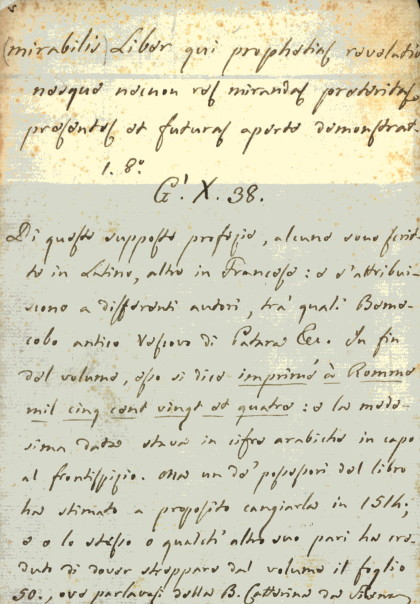 (mirabilis) Liber qui prophetias revelatio
nesque necnon res mirandas preteritas
presentes et futuras aperte demonstrat.
1. 8.°
G.' X. 38.
Di queste supposte profezie, alcune sono scrit-
te in Latino, altre in Francese: e s'attribui-
scono a differenti autori, tra' quali Beme-
cobo antico Vescovo di Patara &c. In fin
del volume, esso si dice imprimé à Romme
mil cinq cent vingt et quatre: e la mede-
sima data stava in cifre arabiche in capo
al frontispizio. Ma un de' possessori del libro
ha stimato a proposito cangiarla in 1514;
e o lo stesso o qualch' altro suo pari ha cre-
duto di dover strappare dal volume il foglio
50., ove parlavasi della B. Catterina da Siena